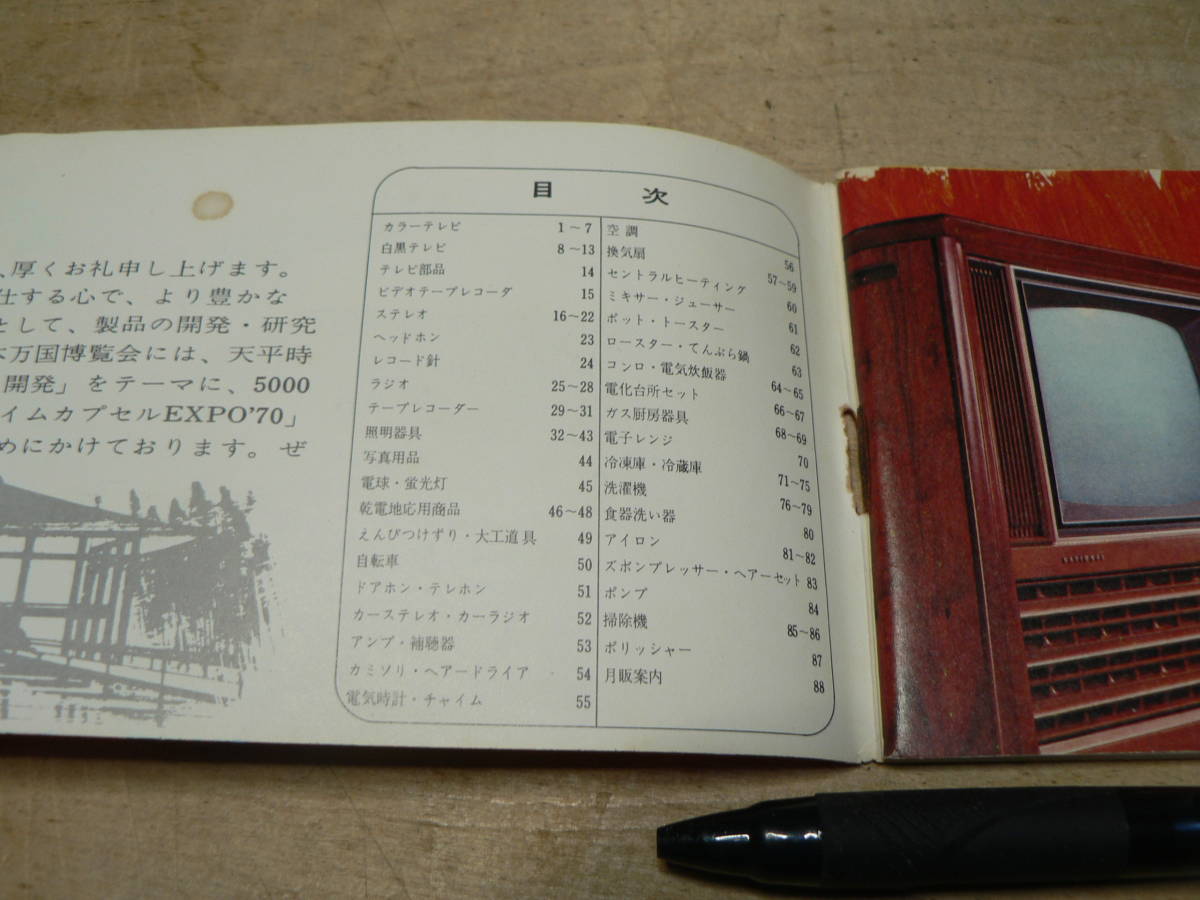 、厚くお礼申し上げます。
仕する心で、より豊かな
として、製品の開発・研究
万国博覧会には、天平時
開発」をテーマに、5000
イムカプセルEXPO'70」
めにかけております。ぜ
目次
カラーテレビ 1～7
白黒テレビ 8～13
テレビ部品 14
ビデオテープレコーダ 15
ステレオ 16～22
ヘッドホン 23
レコード針 24
ラジオ 25～28
テープレコーダー 29～31
照明器具 32～43
写真用品 44
電球・蛍光灯 45
乾電地応用商品 46～48
えんぴつけずり・大工道具 49
自転車 50
ドアホン・テレホン 51
カーステレオ・カーラジオ 52
アンプ・補聴器 53
カミソリ・ヘアードライア 54
電気時計・チャイム 55
空調 56
換気扇 57～59
セントラルヒーティング 60
ミキサー・ジューサー 61
ポット・トースター 62
ロースター・てんぷら鍋 63
コンロ・電気炊飯器 64～65
電化台所セット 66～67
ガス厨房器具 68～69
電子レンジ 70
冷凍庫・冷蔵庫 71～75
洗濯機 76～79
食器洗い器 80
アイロン 81～82
ズボンプレッサー・ヘアーセット 83
ポンプ 84
掃除機 85～86
ポリッシャー 87
月販案内 88
NATIONAL